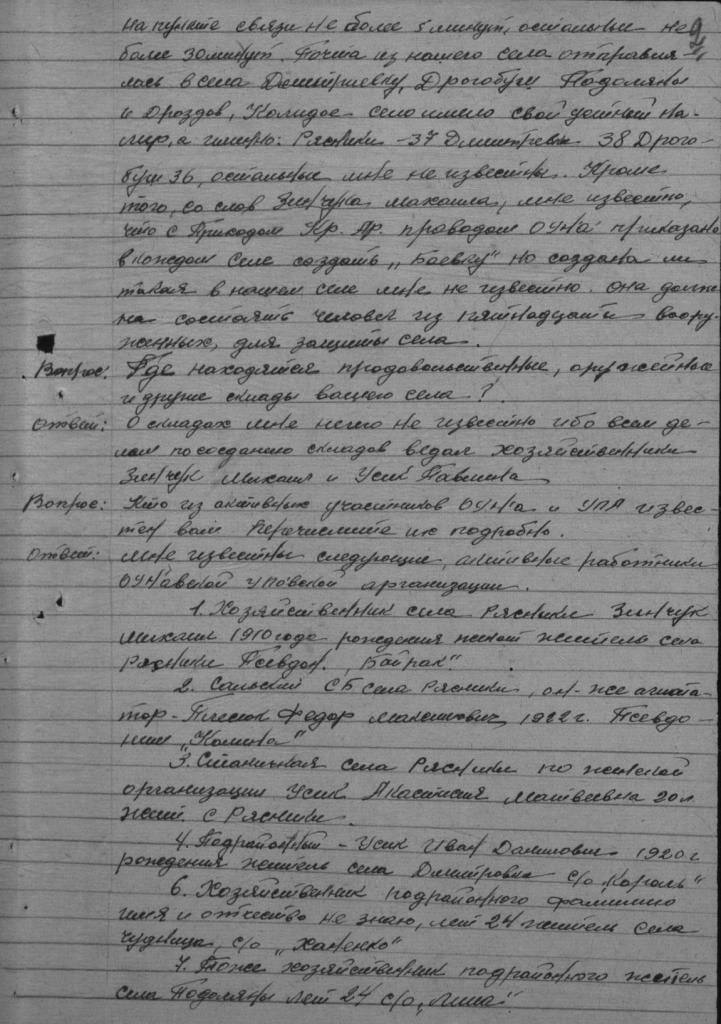 9
на пункте связи не более 5 минут, остальные не
более 30 минут. Почта из нашего села отправля-
лась в села Дмитриевку, Дрогобуш Подоляны
и Дроздов, Каждое село имело свой условный но-
мер, а именно: Рясники - 37 Дмитревк 38 Дрого-
буш 36, остальные мне не известны. Кроме
того, со слов Зинчука Михаила, мне известно,
что с приходом Кр. Ар. проводом ОУНа приказано
в каждом селе создать „Боевку" но создана ли
такая в нашем селе мне не известно. она долж-
на состоять человек из пятнадцати воору-
женных, для защиты села.
Вопрос: Где находятся продовольственные, оружейные
и другие склады вашего села?
Ответ: О складах мне нечего не известно ибо всем де-
лом по созданию складов ведал хозяйственники
Зинчук Михаил и Усик Павлина
Вопрос: Кто из активных участников ОУНа и УПА извес-
тен вам перечислите их подробно.
Ответ: мне известны следующие, активные работники
ОУНавской УПовской организации.
1. Хозяйственник села Рясники Зинчук
Михаил 1910 года рождения житель села
Рясники Псевдон. „Байрак".
2. Сельский СБ села Рясники, он-же агита-
тор - Плесюк Федор Максимович, 1922 г. Псевдо-
ним „Калина"
3. Станичная села Рясники по женской
организации Усик Анастасия Матвеевна 20 л.
жит. с Рясники.
4. Подрайонный - Усик Иван Данилович 1920 г
рождения житель села Дмитровка с/о „Король"
6. Хозяйственник подрайонного фамилию
имя и отчество не знаю, лет 24 житель села
Чудница, с/о „Ханенко"
7. Тоже хозяйственник подрайонного житель
села Подоляны лет 24 с/о „Миша"